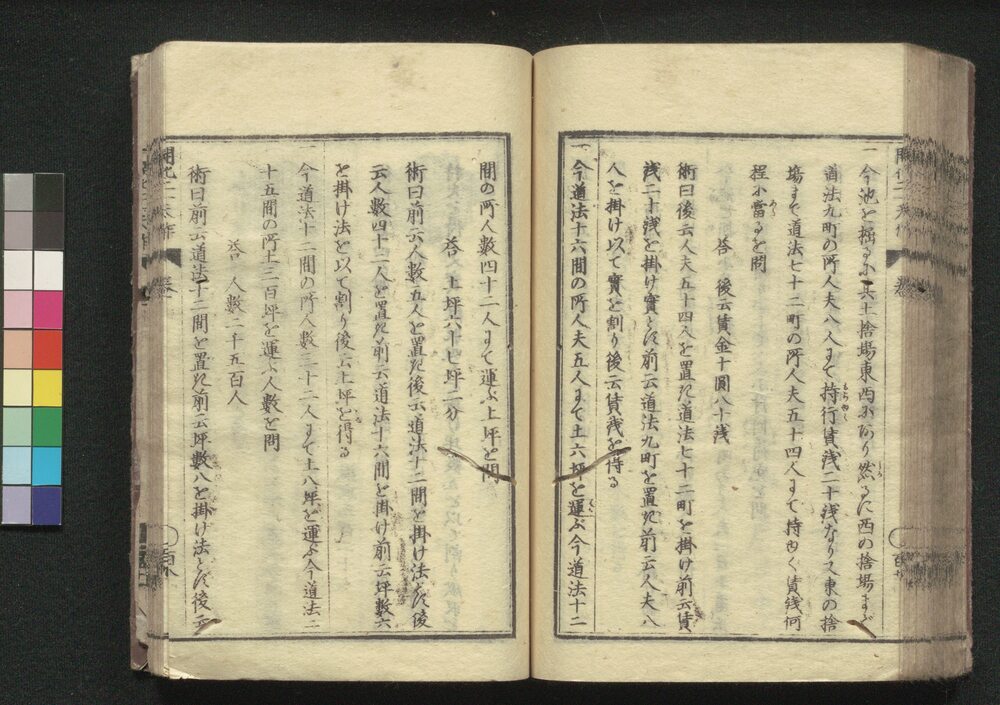 一今池を掘るに其土捨場東西にあり然るに西の捨場まで
道法九町の所人夫八人まて持行賃浅二十浅なり又東の捨
場まて道法七十二町の所人夫五十四人まて持ゆく賃浅何
程に當るを問
答 後云賃金十圓八十浅
術曰後云人夫五十四人を置き道法七十二町を掛け前云賃
浅二十浅を掛け實とす前云道法九町を置き前云人夫八
人を掛け以て實を割り後云賃浅を得る
一今道法十六間の所人夫五人まて土六坪を運ぶ今道法十二
間の所人数四十二人まて運ぶ土坪を問
答 土坪六十七坪二分
術曰前云人数五人を置き後云道法十二間を掛け法とす後
云人数四十二人を置き前云道法十六間を掛け前云坪数六
を掛け法を以て割り後云土坪を得る
一今道法十二間の所人数三十二人まて土八坪を運ぶ今道法二
十五間の所土三百坪を運ぶ人数を問
答 人数二千五百人
術曰前云道法十二間を置き前云坪数八を掛け法とす後云